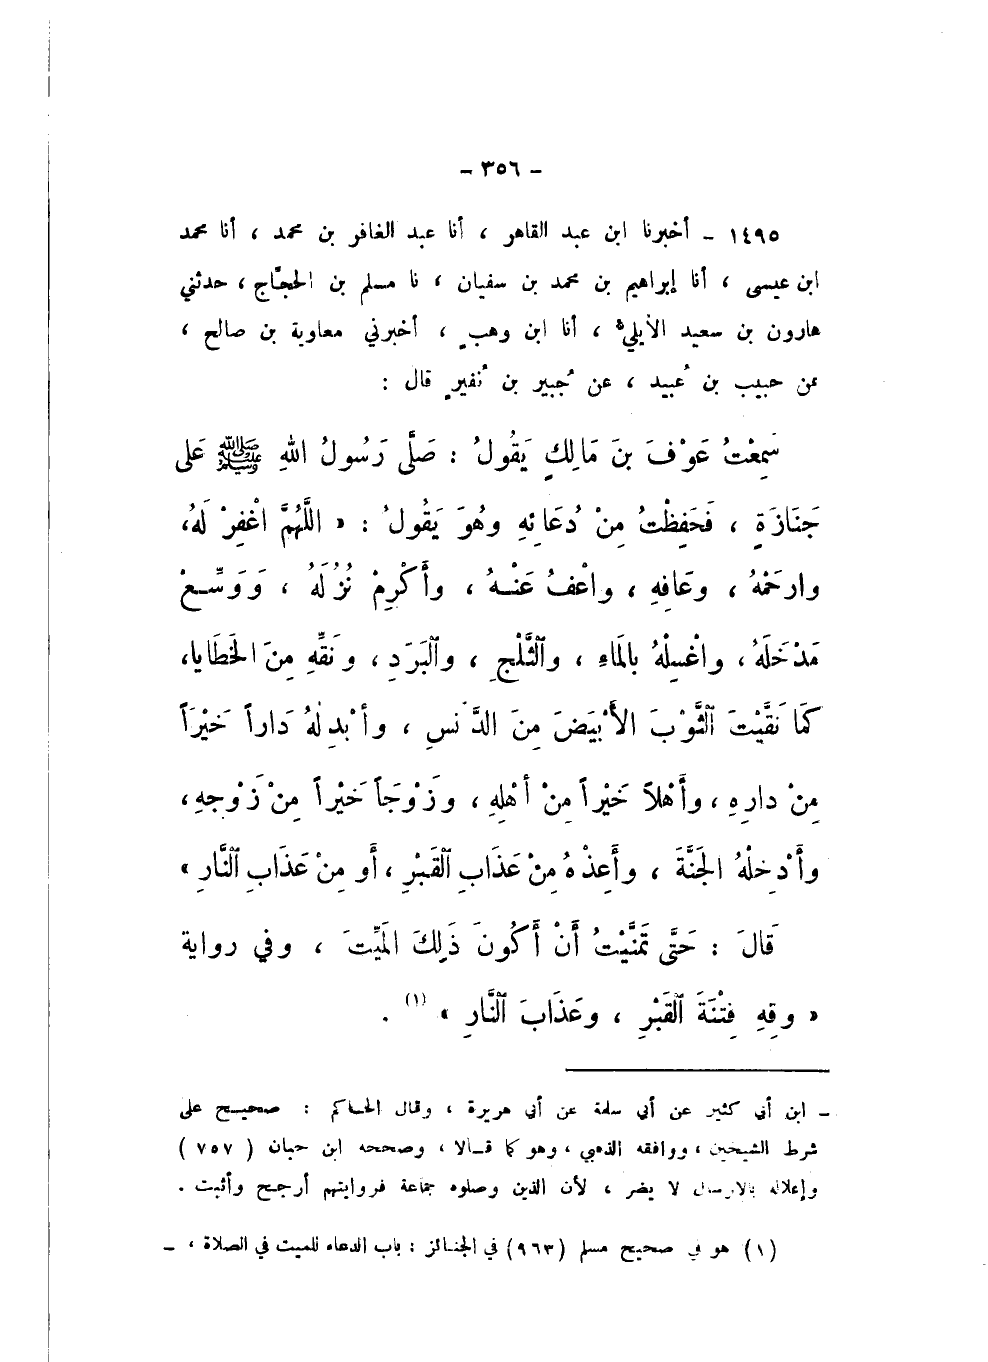 - ٣٥٦ -
١٤٩٥ - أخبرنا ابن عبد القاهر ، أنا عبد الغافر بن محمد ، أنا محمد
ابن عيسى ، أنا إبراهيم بن محمد بن سفيان ، نا مسلم بن الحجّاج ، حدثني
هارون بن سعيد الأيليّ ، أنا ابن وهبٍ ، أخبرني معاوية بن صالح ،
عن حبيب بن عُبيد ، عن جُبير بن نُفيرٍ قال :
سَمِعْتُ عَوْفَ بنَ مَالِكٍ يَقُولُ : صَلَّى رَسُولُ اللهِ ﷺ عَلى
جَنَازَةٍ ، فَحَفِظْتُ مِنْ دُعَائِهِ وهُوَ يَقُولُ : « اللَّهُمَّ اغْفِرْ لَهُ،
وارحَمْهُ ، وعَافِهِ ، واعْفُ عَنْهُ ، وأَكْرِمْ نُزُلَهُ ، وَوَسِّعْ
مَدْخَلَهُ ، واغْسِلْهُ بالمَاءِ ، والثَّلْجِ ، والبَرَدِ ، ونَقِّهِ مِنَ الخَطَايا،
كَمَا نَقَّيْتَ الثَّوْبَ الأَبْيَضَ مِنَ الدَّنَسِ ، وأَبْدِلْهُ دَاراً خَيْرَاً
مِنْ دارِهِ ، وأَهْلاً خَيْراً مِنْ أَهْلِهِ ، وزَوْجَاً خَيْراً مِنْ زَوْجِهِ،
وأَدْخِلْهُ الجَنَّةَ ، وأَعِذْهُ مِنْ عَذَابِ القَبْرِ ، أَو مِنْ عَذَابِ النَّارِ »
قَالَ : حَتَّى تَمَنَّيْتُ أَنْ أَكُونَ ذَلِكَ المَيِّتَ ، وفي رواية
« وقِهِ فِتْنَةَ القَبْرِ ، وعَذَابَ النَّارِ » (١) .
- ابن أبي كثير عن أبي سلمة عن أبي هريرة ، وقال الحاكم : صحيح على
شرط الشيخين ، ووافقه الذهبي ، وهو كما قالا ، وصححه ابن حبان ( ٧٥٧ )
وإعلاله بالارسال لا يضر ، لأن الذين وصلوه جماعة فروايتهم أرجح وأثبت .
(١) هو في صحيح مسلم (٩٦٣) في الجنائز : باب الدعاء للميت في الصلاة ، -